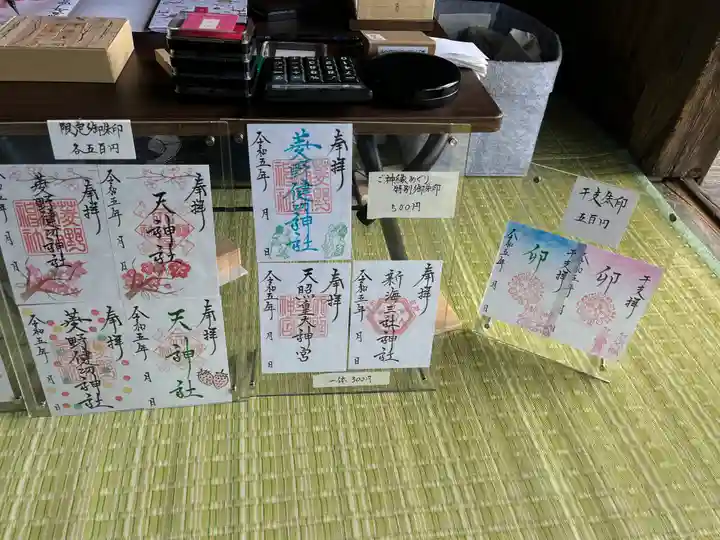 限定御朱印
各五百円
奉拝
菱野健功神社
令和五年 月 日
奉拝
天神社
令和五年 月 日
奉拝
菱野健功神社
令和五年 月 日
奉拝
天神社
令和五年 月 日
奉拝
菱野健功神社
令和五年 月 日
ご神縁めぐり
特別御朱印
500円
奉拝
天照皇大神宮
令和五年 月 日
奉拝
新海三社神社
令和五年 月 日
一体 300円
干支朱印
五百円
干支拝
卯
令和五年 月 日
干支拝
卯
令和五年 月 日